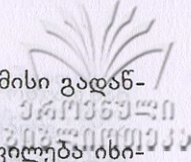 მისი გადაწ-
ეროვნული
ბიბლიოთეკა
ვილება იხი-